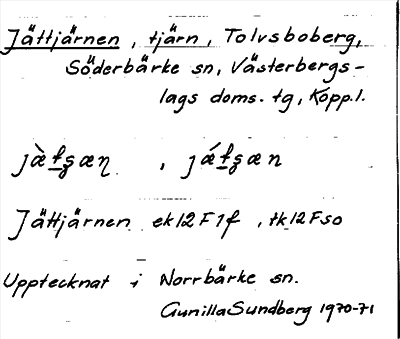 Jättjärnen, tjärn, Tolvsboberg,
Söderbärke sn, Västerbergs-
lags doms. tg, Kopp.l.
Jättjärnen ek12F1f, tk12Fso
Upptecknat i Norrbärke sn.
Gunilla Sundberg 1970-71